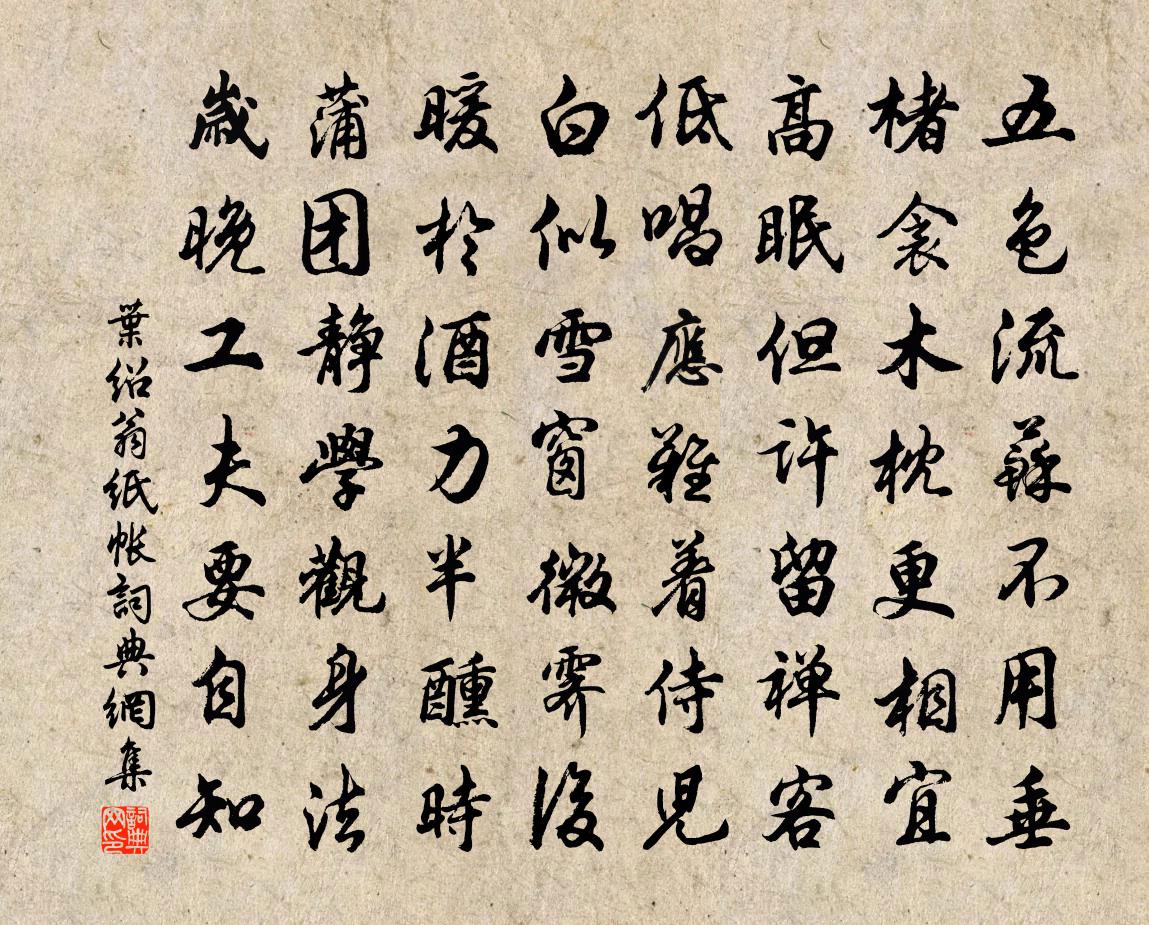 五色流蘇不用垂
楮衾木枕更相宜
高眠但许留禅客
低唱應難着侍児
白似雪窗微霽後
暖於酒力半醺時
蒲团静學觀身法
歳晚工夫要自知
葉绍翁纸帐詞典網集
詞典網印